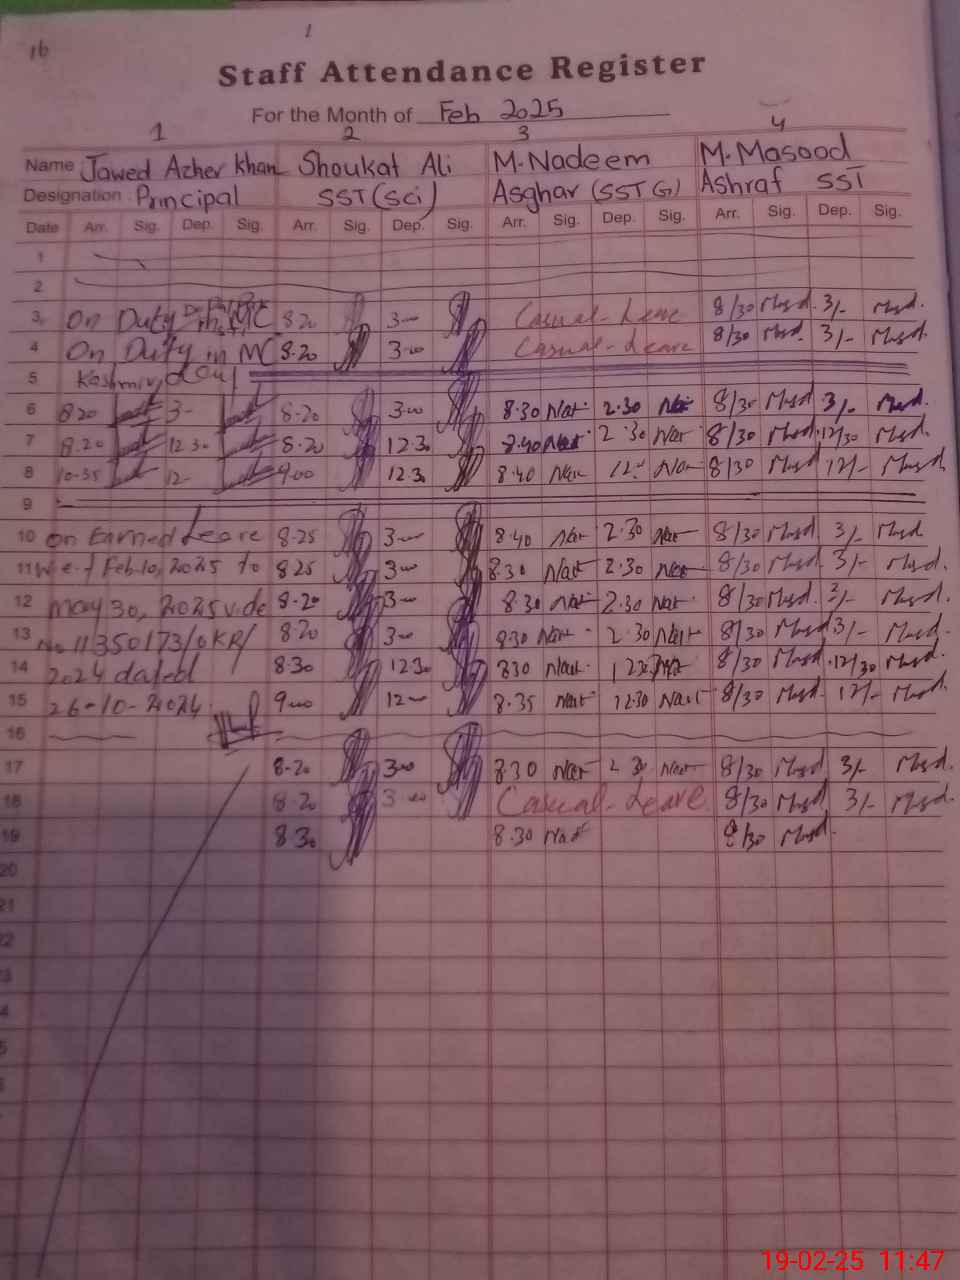 16
1
Staff Attendance Register
For the Month of Feb 2025
1 2 3 4
Name Jawed Azher Khan Shoukat Ali M. Nadeem M. Masood
Designation Principal SST (Sci) Asghar (SST G) Ashraf SST
Date Arr. Sig. Dep. Sig. Arr. Sig. Dep. Sig. Arr. Sig. Dep. Sig. Arr. Sig. Dep. Sig.
1
2
3 On Duty 8 20 3-00 Casual-Leave 8/30 3/-
4 On Duty in MC 8-20 3-00 Casual-Leave 8/30 3/-
5 Kashmir day
6 8 20 3- 8-20 3-00 8.30 2.30 8/30 3/-
7 8.20 12.30 8-20 12.30 8.40 2.30 8/30 12/30
8 10-35 12- 9.00 12.30 8.40 12- 8/30 12/-
9
10 On Earned Leave 8-25 3-00 8.40 2.30 8/30 3/-
11 W.e.f Feb-10, 2025 to 8 25 3-00 8.30 2.30 8/30 3/-
12 May 30, 2025 vide 8-20 3-00 8.30 2.30 8/30 3/-
13 No 11350173/ 8 20 3-00 8.30 2.30 8/30 3/-
14 2024 dated 8.30 12.30 8 30 12.30 8/30 12/30
15 26-10-2024 9-00 12-00 8.35 12.30 8/30 12/-
16
17 8-20 3-00 8 30 2 30 8/30 3/-
18 8-20 3-00 Casual-Leave 8/30 3/-
19 8 30 8.30 8/30
20
21
22
3
4
5
19-02-25 11:47